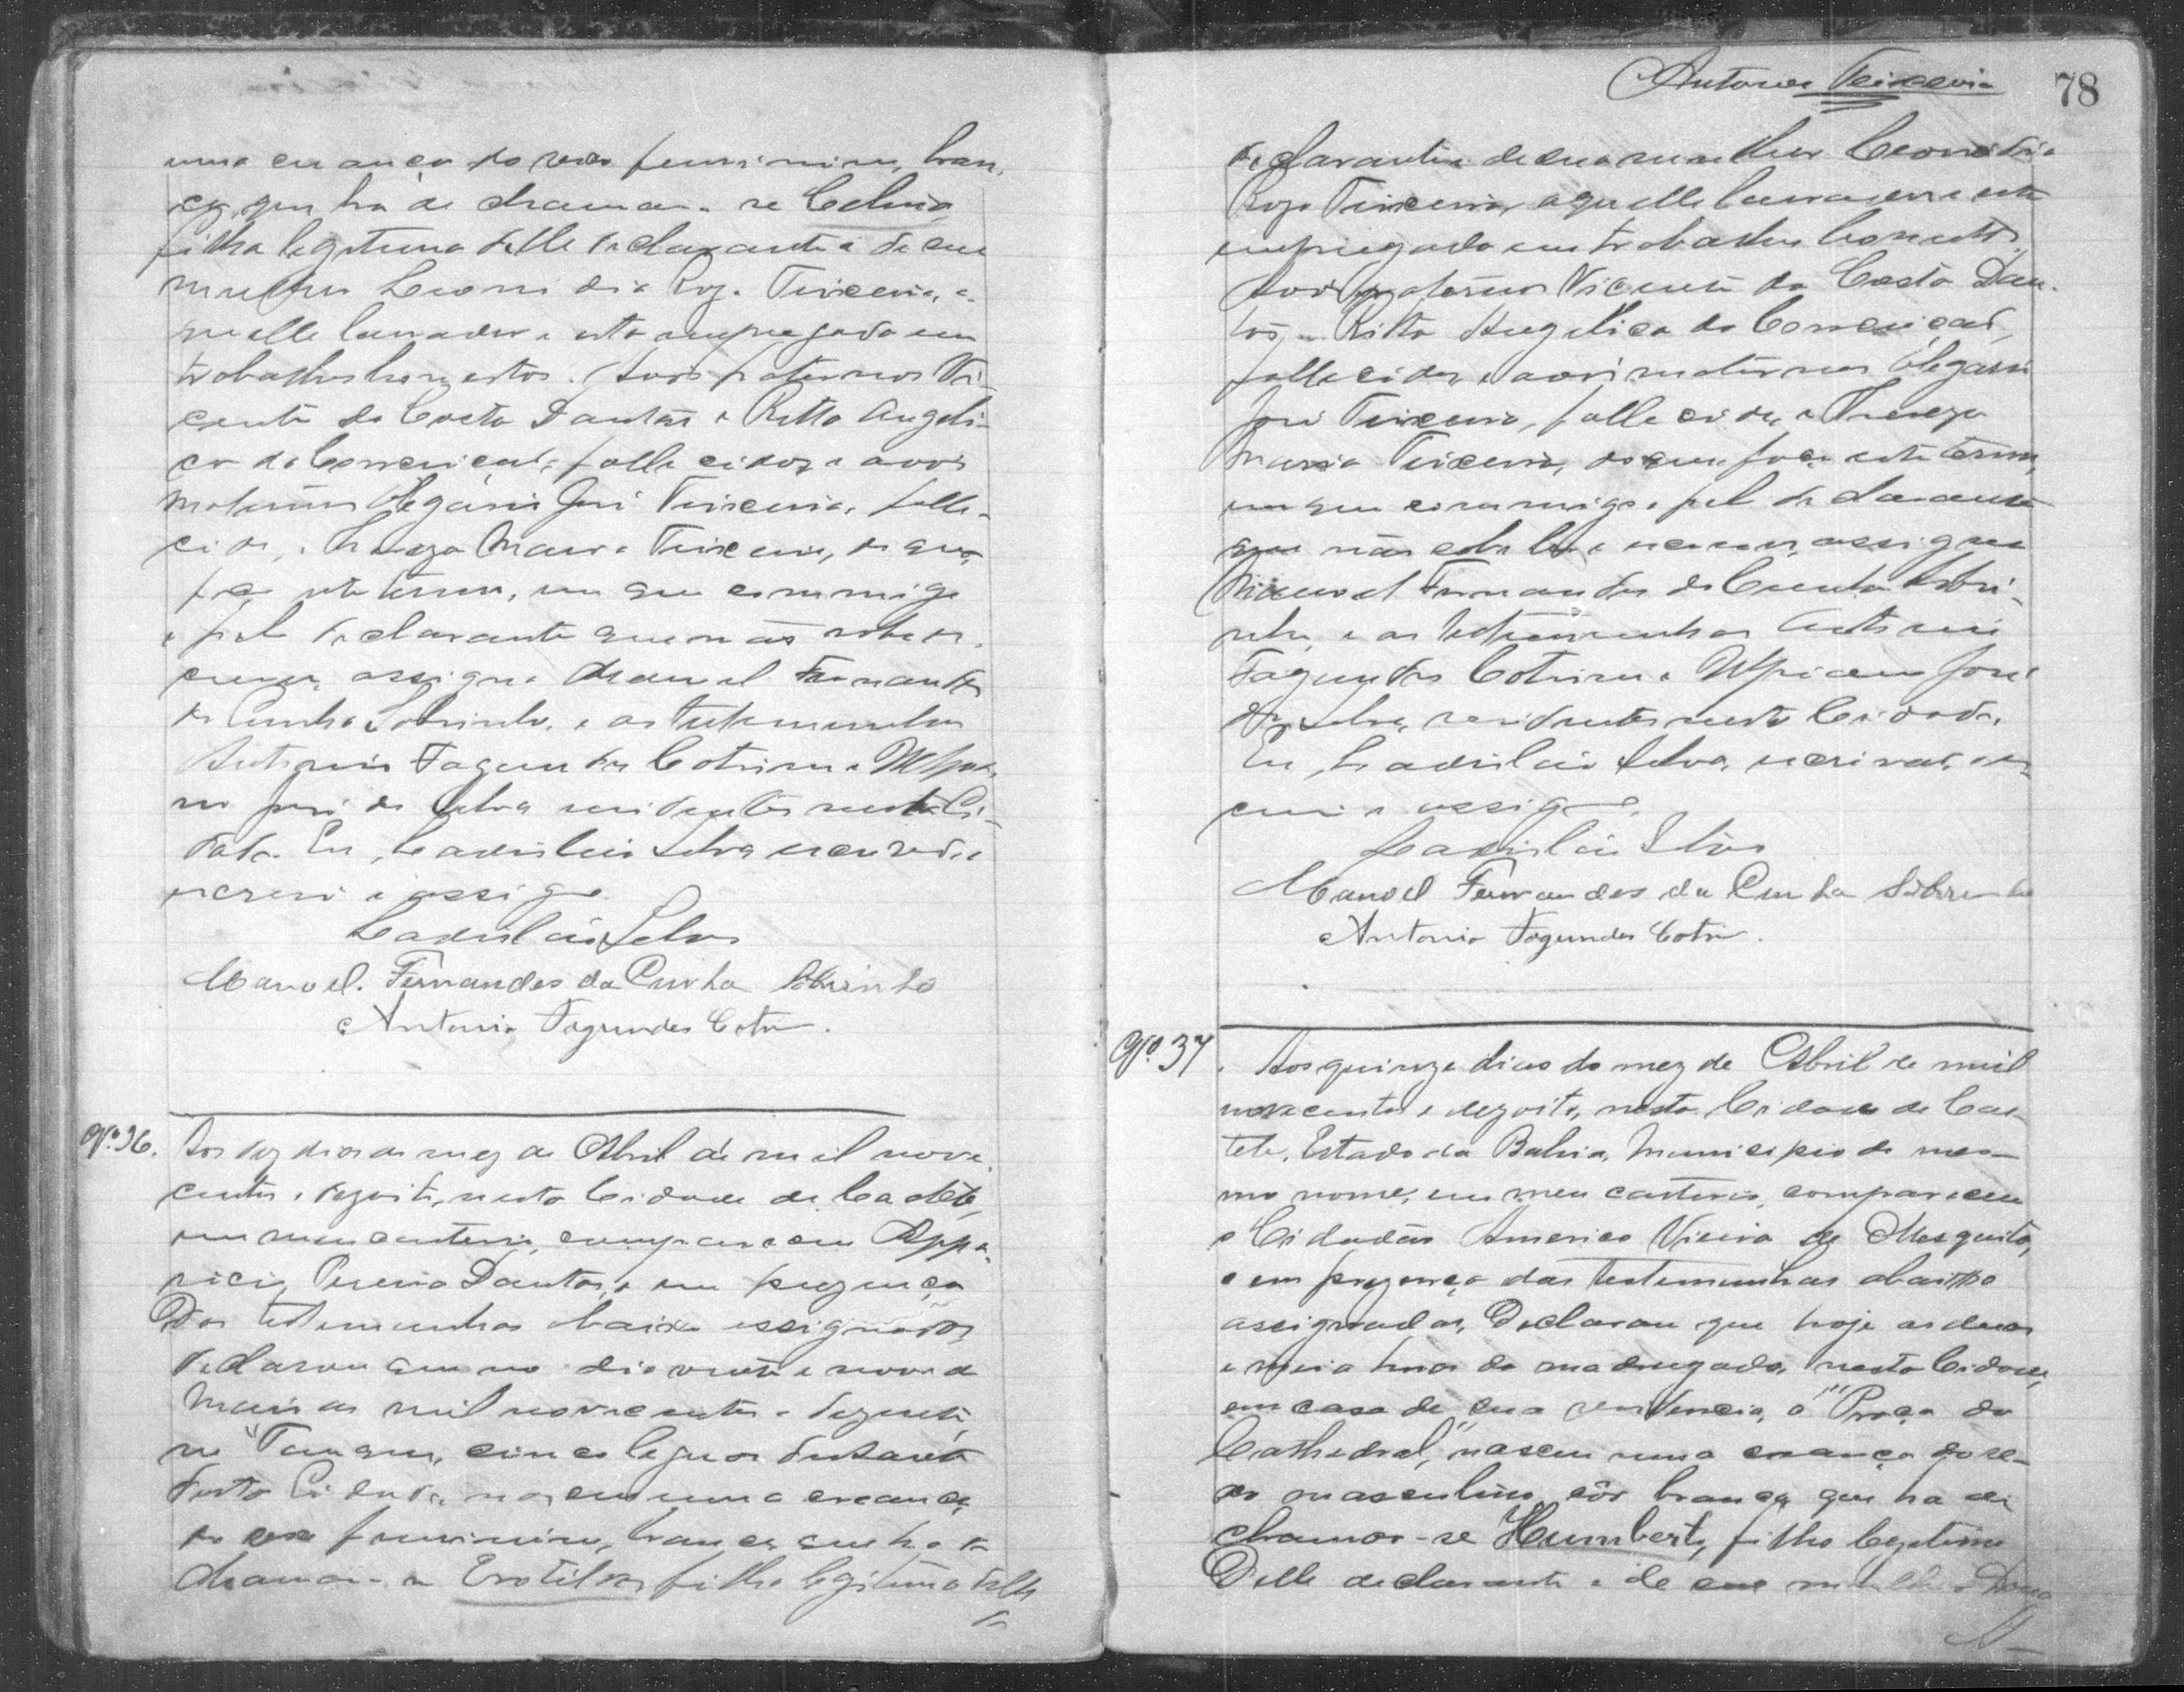 uma creança do sexo feminino, bran-
ca, que ha de chamar-se Celina,
filha legitima delle declarante e de sua
mulher Leonidia Roza Teixeira, a-
quelle lavrador e esta empregada em
trabalhos honestos. Avós paternos Vi-
cente da Costa Dantas e Ritta Angeli-
ca da Conceição, fallecidos e avós
maternos Olegario José Teixeira, falle-
cido, e Thereza Maria Teixeira, do que,
faço este termo, em que commigo
e pelo declarante que não sabe es-
crever, assigna Manoel Fernandes
da Cunha Sobrinho, e as testemunhas
Antonio Fagundes Cotrim e
José da Silva residentes nesta Ci-
dade. Eu, Silva escrivão,
escrevi e assigno.
Silva
Manoel. Fernandes da Cunha Sobrinho
Antonio Fagundes Cotrim.
Nº 36. Aos dez dias do mez de Abril de mil nove-
centos e dezoito, nesta Cidade de Caeteté,
em meu cartorio, compareceu Appa-
ricio Pereira Dantas, e em prezença
Das testemunhas abaixo assignadas,
declarou que no dia vinte e nove de
Março de mil novecentos e dezesete,
no "Tanque, cinco leguas distante
desta Cidade, nasceu uma creança
do sexo feminino, branca, que ha de
chamar-se Erotildes, filha legitima delle
de
Antonia Teixeira
78
declarante e de sua mulher Leonidia
Roza Teixeira, aquelle lavrador e esta
empregada em trabalhos honestos.
Avós paternos Vicente da Costa Dan-
tas, e Ritta Angelica da Conceição,
fallecidos, e avós maternos Olegario
José Teixeira, fallecido, e Thereza
Maria Teixeira, do que, faço este termo,
em que commigo e pelo declarante
que não sabe ler e escrever, assigna
Manoel Fernandes da Cunha Sobri-
nho, e as testemunhas Antonio
Fagundes Cotrim e José
da Silva, residentes nesta Cidade.
Eu, Silva, escrivão, es-
crevi e assigno.
Silva
Manoel Fernandes da Cunha Sobrinho
Antonio Fagundes Cotrim.
Nº 37. Aos quinze dias do mez de Abril de mil
novecentos e dezoito, nesta Cidade de Cae-
teté, Estado da Bahia, Municipio do mes-
mo nome, em meu cartorio, compareceu
o Cidadão Americo Vieira de Mesquita,
e em prezença das testemunhas abaixo
assignadas, Declarou que hoje as duas
e meia horas da madrugada, nesta Cidade,
em casa de sua residencia, á "Praça da
Cathedral," nasceu uma creança do se-
xo masculino, côr branca, que ha de
chamar-se Humberto, filho legitimo
Delle declarante e de sua mulher Dona